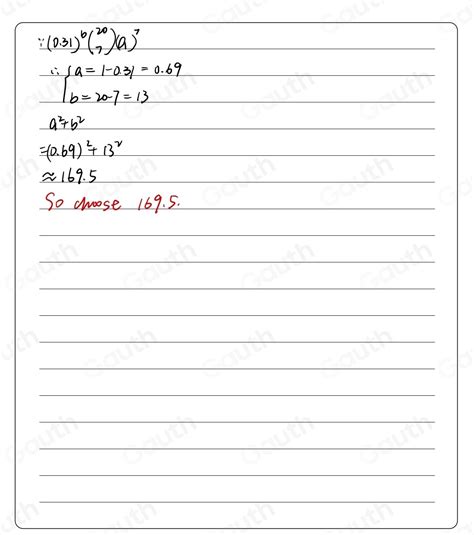 ∵ (0.31)^b (20 7)(a)^7
∴ { a = 1-0.31 = 0.69
b = 20-7 = 13
a²+b²
=(0.69)²+13²
≈169.5
So choose 169.5.
Gauth